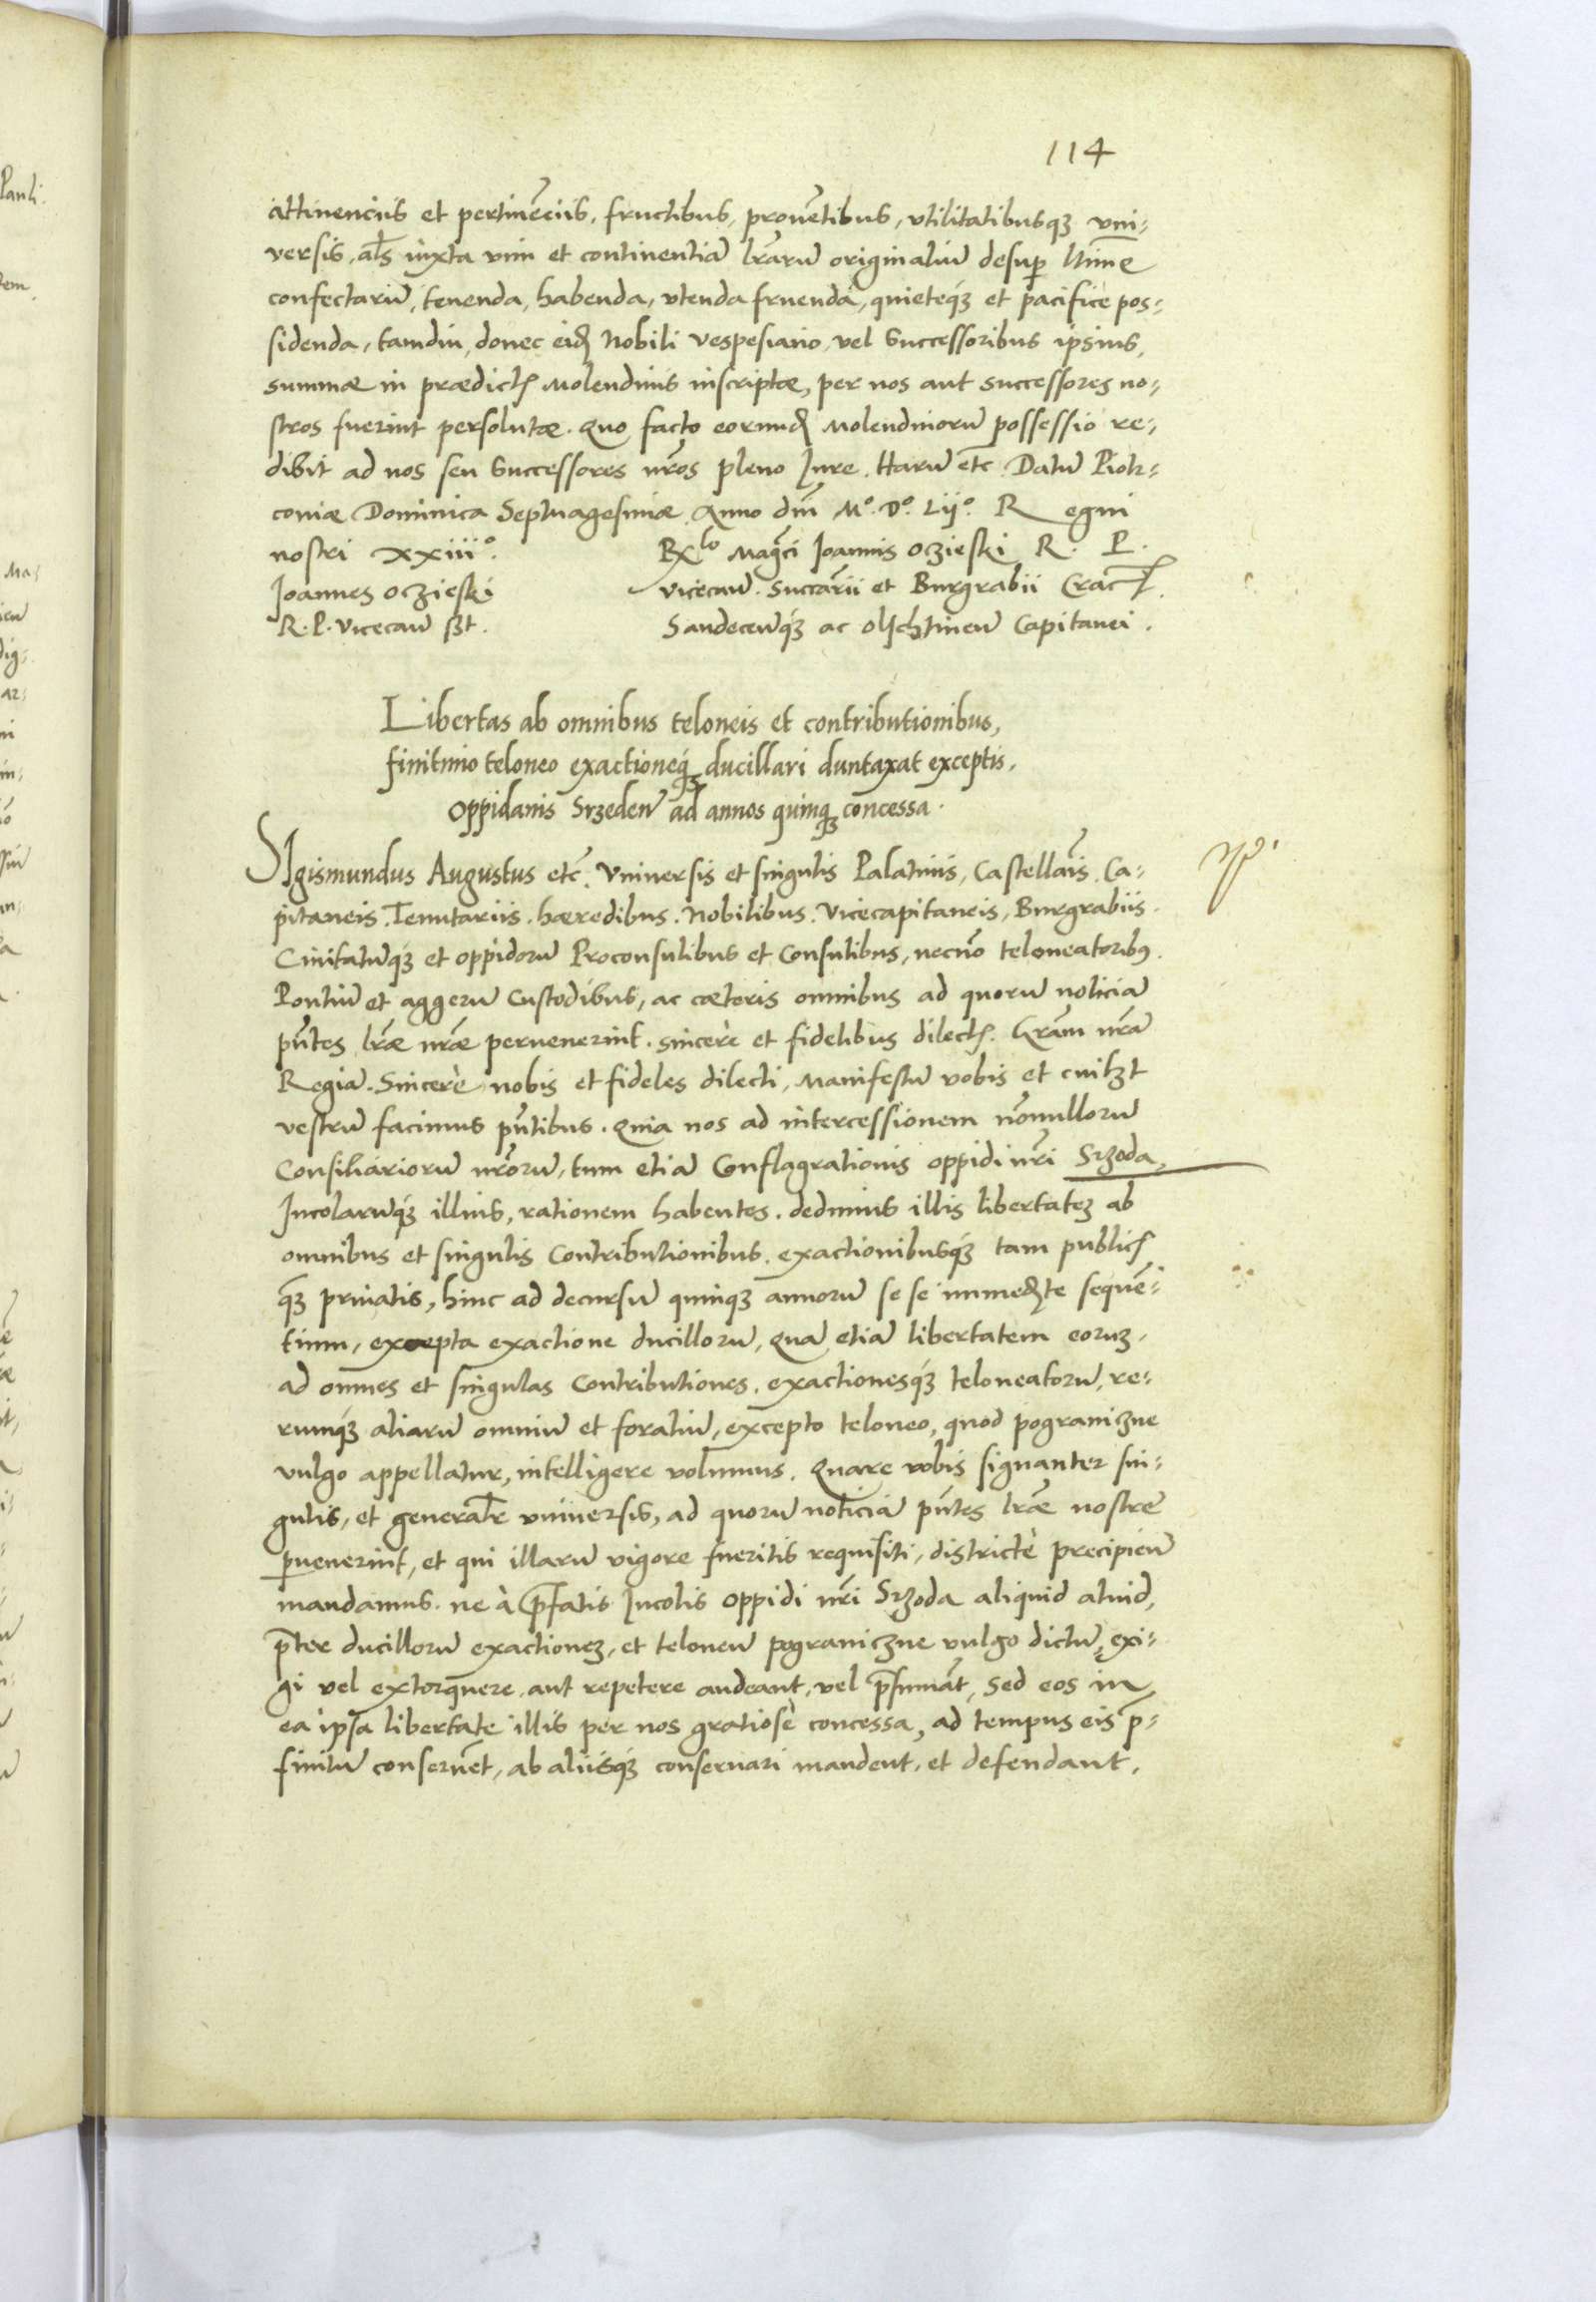 114
attinenciis et pertinēciis, fructibus, prouētibus, vtilitatibusq́ȝ vni-
versis, al̄s iuxta vim et continentiā lr̄arū originaliū desup̱
confectarū, tenenda, habenda, vtenda fruenda, quieteq́ȝ et pacificè pos-
sidenda, tamdiu, donec eid Nobili Vespesiano, vel Successoribus ipsius,
summæ in prædict Molendinis inscriptæ, per nos aut successores no-
stros fuerint persolutæ. Quo facto eorund Molendinorū possessio re-
dibit ad nos seu Successores nr̄os pleno Jure. Harū etc̄ Datū Piotr-
coniæ Dominica Septuagesimæ Anno dn̄i M°. D°. Lij°. Regni
nostri xxiii°. Rx̱lo Mag̱ci Joannis Oczieski R. P.
Joannes Oczieski vicecan̄. Succarii et Burgrabii Crac
R. P. Vicecan̄ sßt. Sandecen̄q́ȝ ac Olschtinen̄ Capitanei.
Libertas ab omnibus teloneis et contributionibus,
finitimo teloneo exactioneq́ȝ ducillari duntaxat exceptis,
oppidanis Srzeden̄ ad annos quinqȝ concessa.
Sigismundus Augustus etc̄. Vniuersis et singulis Palatinis, Castellāis, Ca-
pitaneis, Tenutariis, hæredibus, Nobilibus, Vicecapitaneis, Burgrabiis.
Ciuitatūq́ȝ et oppidorū Proconsulibus et Consulibus, necnō teloneatoribꝰ.
Pontiū et aggerū Custodibus, ac cæteris omnibus ad quorū noticiā
pn̄tes lr̄æ nr̄æ peruenerint. sincerè et fidelibus dilect. Gr̄am nr̄ā
Regiā. Sincerè nobis et fideles dilecti, Manifestū vobis et cuilȝt
vestrū facimus pn̄tibus. Quia nos ad intercessionem nōnullorū
Consiliariorū nr̄orū, tum etiā Conflagrationis oppidi nr̄i Srzoda,
Incolarūq́ȝ illius, rationem habentes, dedimus illis libertatēȝ ab
omnibus et singulis Contributionibus, exactionibusq́ȝ tam public
q̄ȝ priuatis, hinc ad decursū quinqȝ annorū se se immed̶te sequē-
tium, excepta exactione ducillorū, Quā etiā libertatem eorūȝ,
ad omnes et singulas Contributiones, exactionesq́ȝ teloneatorū, re-
rumq́ȝ aliarū omniū et foraliū, excepto teloneo, quod pograniczne
vulgo appellatur, intelligere volumus. Quare vobis signanter sin-
gulis, et generalr̄ vniuersis, ad quorū noticiā pn̄tes lr̄æ nostre
p̱uenerint, et qui illarū vigore fueritis requisiti, districtè precipien̄
mandamus. ne à p̄fatis Incolis oppidi nr̄i Srzoda aliquid aliud,
p̄ter ducillorū exactioneȝ, et teloneū pograniczne vulgo dictū, exi-
gi vel extorquere, aut repetere audeant, vel p̄sumāt, sed eos in
ea ipsa libertate illis per nos gratiosè concessa, ad tempus eis p̄-
finitū conseruēt, ab aliisq́ȝ conseruari mandent, et defendant,